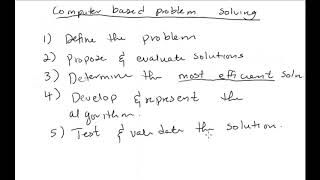 Computer based problem solving
1) Define the problem
2) Propose & evaluate solutions
3) Determine the most efficient soln
4) Develop & represent the
algorithm.
5) Test & validate the solution.